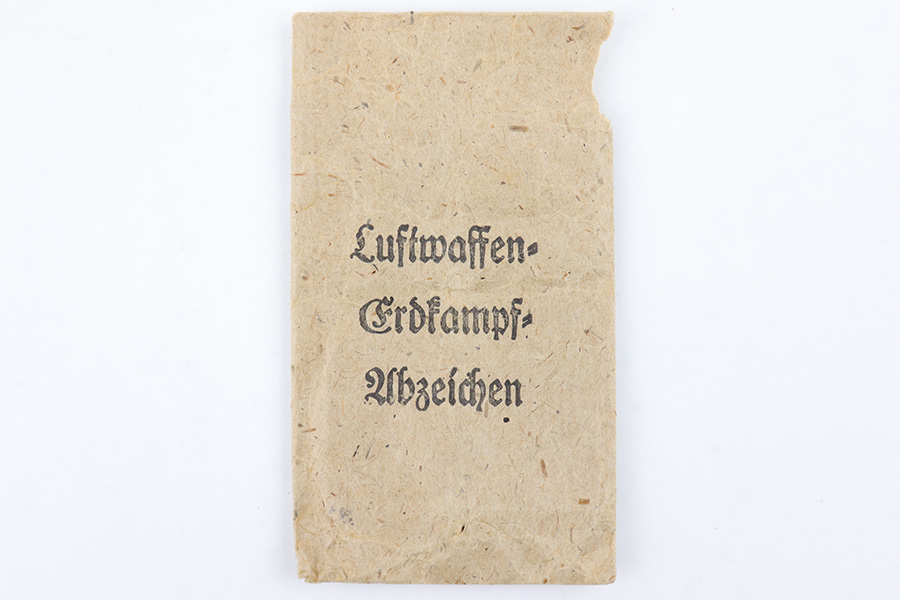 Luftwaffen-
Erdkampf-
Abzeichen